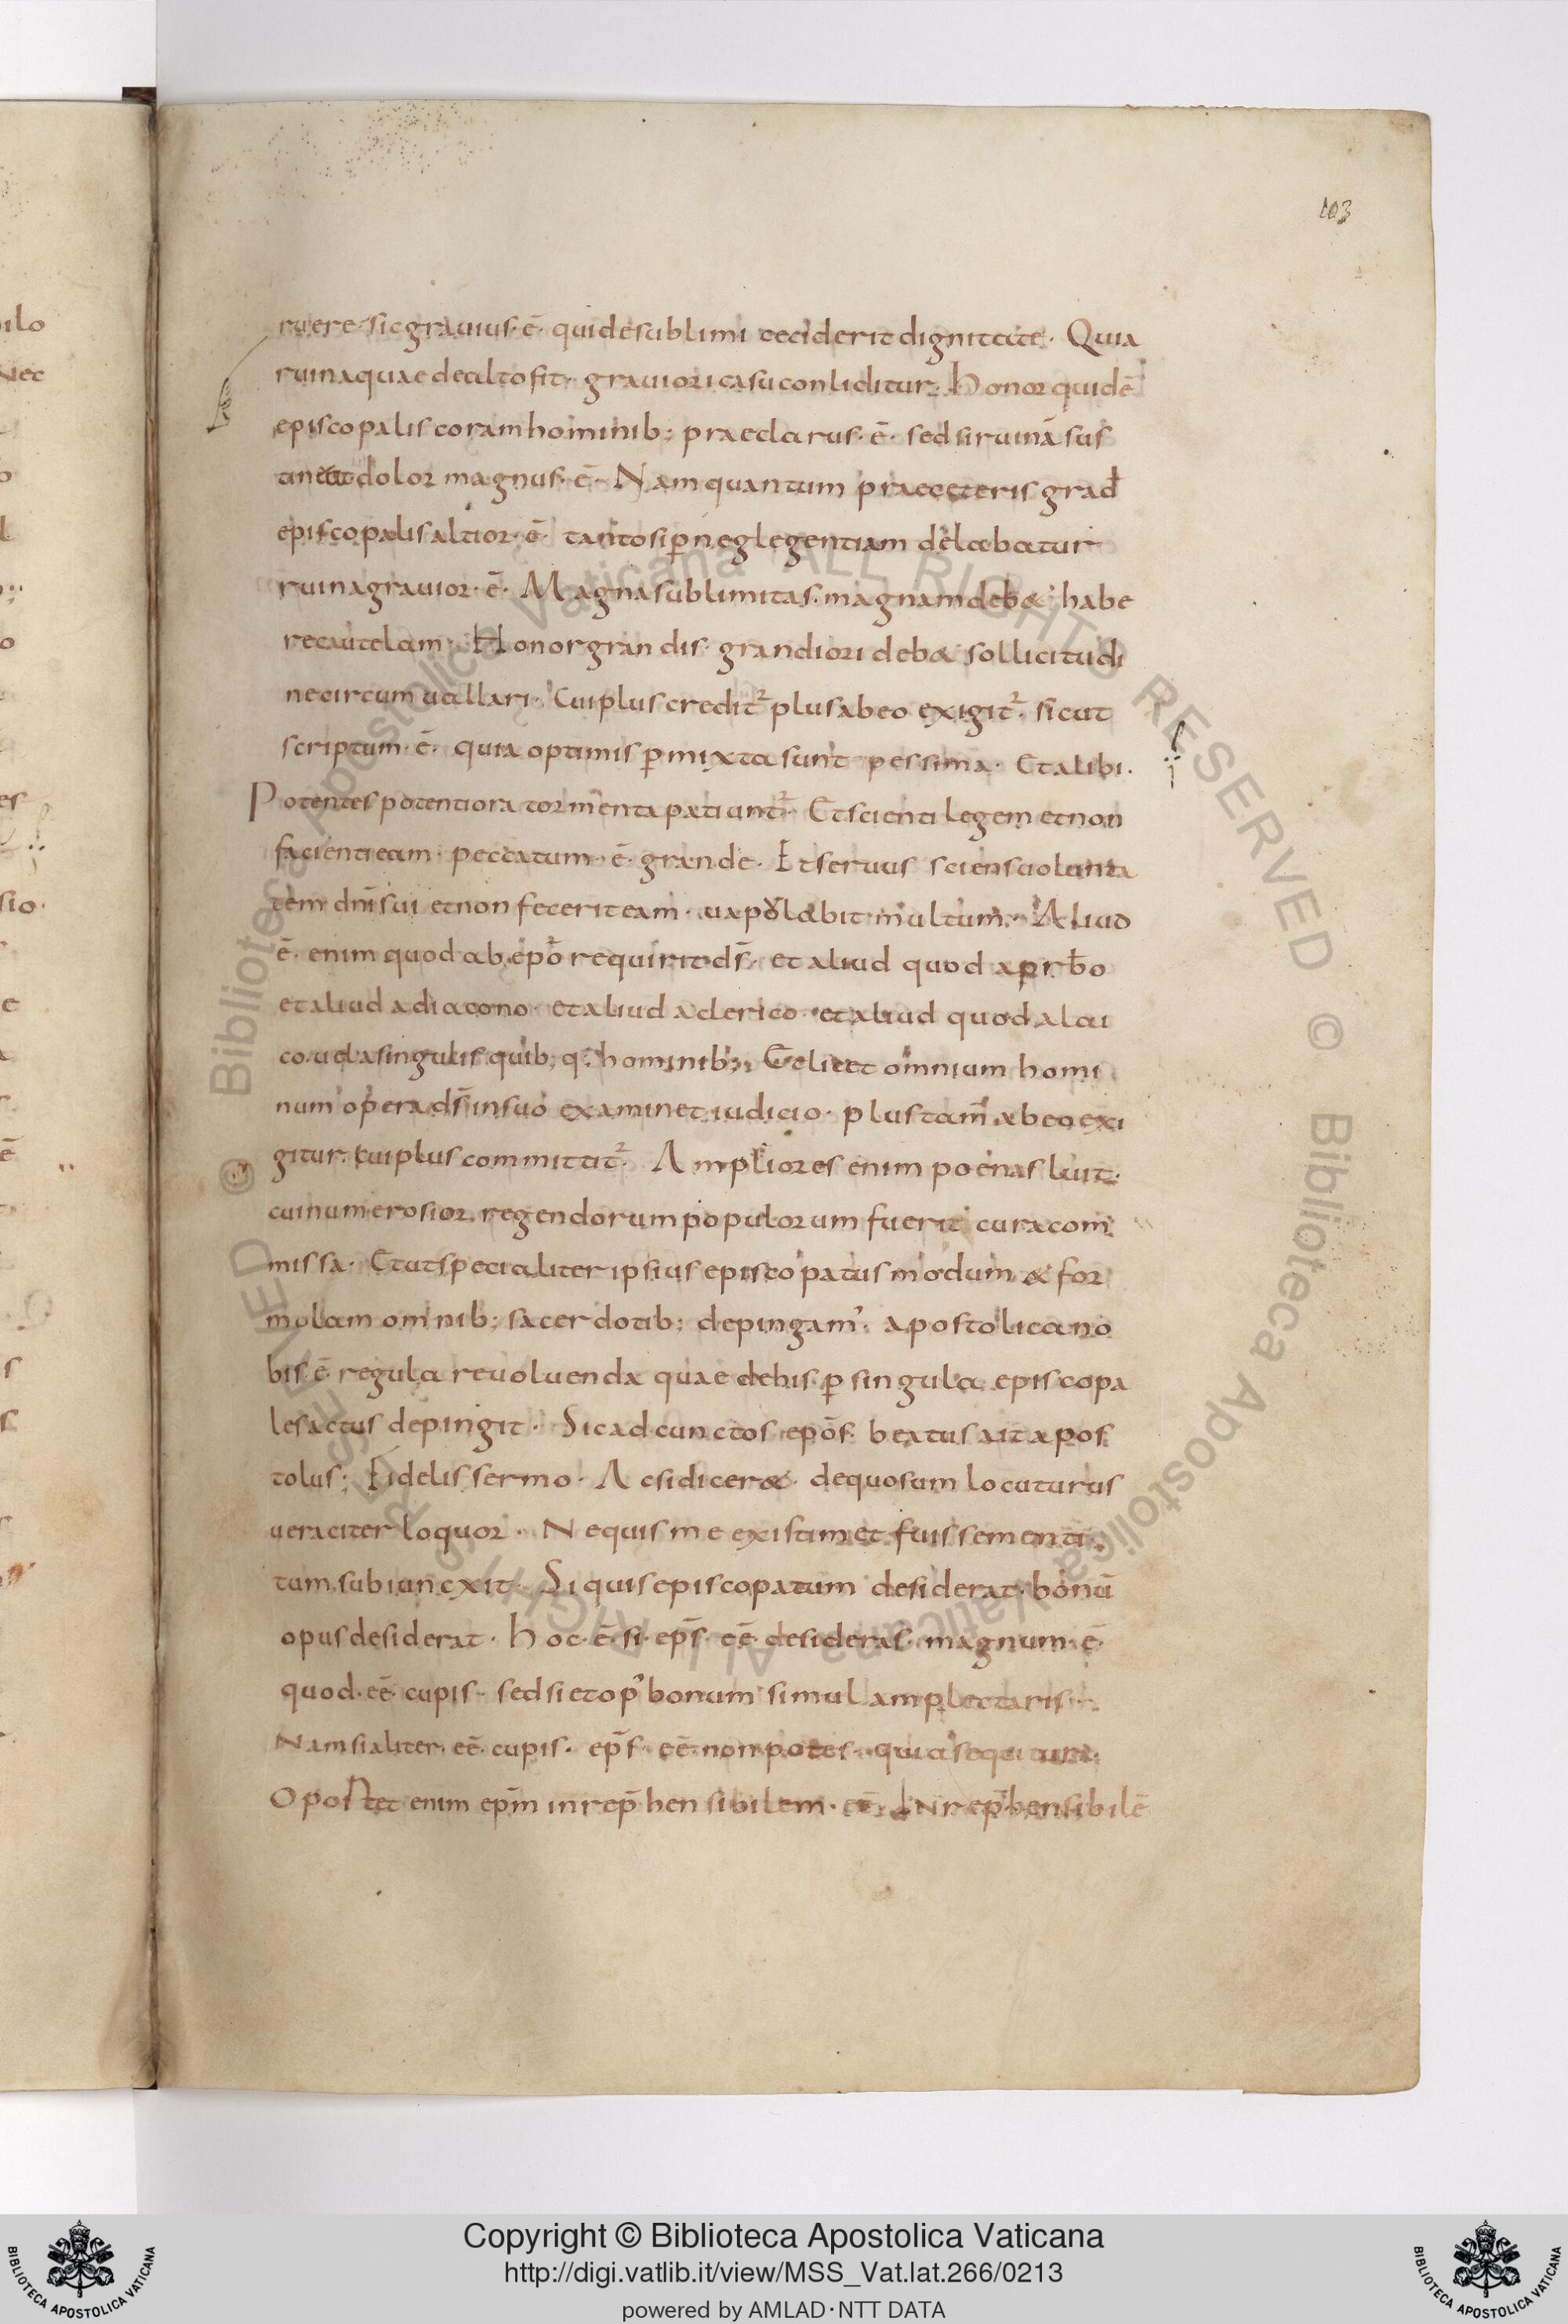 103
ruere· sic grauius· ē· qui de sublimi ceciderit dignitate· Quia
ruina quae de alto fit· grauiori casu conliditur· Honor quidē
episcopalis coram hominib; praeclarus· ē· sed si ruinā sus
tineat dolor magnus· ē· Nam quantum prae ceteris grad'
episcopalis altior· ē· tanto si ꝑ neglegentiam delabatur
ruina grauior· ē· Magna sublimitas· magnam deb& habe
re cautelam· Honor grandis· grandiori deb& sollicitudi
ne circumuallari· Cui plus credit᷑ plus ab eo exigit᷑· sicut
scriptum· ē· quia optimis ꝑmixta sunt pessima· Et alibi·
Potentes potentiora tormenta patiunt᷑· Et scienti legem et non
facienti eam· peccatum· ē· grande· Et seruus sciens uolunta
tem dn̄i sui et non fecerit eam· uapolabit multum· Aliud
ē· enim quod ab ep̄o requirit ds̄· et aliud quod a prb̄o
et aliud a diacono· et aliud a clerico· et aliud quod a lai
co uel a singulis quib; q· hominib; Et licet omnium homi
num opera ds̄ in suo examinet iudicio· plus tam̄ ab eo exi
gitur· cui plus committit᷑· Ampliores enim poenas luit·
cui numerosior regendorum populorum fuerit cura com
missa· Et ut specialiter ipsius episcopatus modum & for
molam omnib; sacerdotib; depingam'· apostolica no
bis· ē· regula reuoluenda quae de his· ꝑ singula episcopa
les actus depingit· Sic ad cunctos ep̄os beatus ait apos
tolus; Fidelis sermo· Ac si dicer&· de quo sum locuturus
ueraciter loquor· Ne quis me existimet fuisse menti
tum, subiuncxit· Si quis episcopatum desiderat· bonū
opus desiderat· Hoc· ē· si· ep̄s· eē· desideras· magnum· ē·
quod· eē· cupis· sed si et op' bonum simul amplectaris·
Nam si aliter· eē· cupis· ep̄s· eē· non potes· quia sequitur·
Oportet enim ep̄m inrep̄hensibilem· eē· Inrep̄hensibilē
Copyright © Biblioteca Apostolica Vaticana
http://digi.vatlib.it/view/MSS_Vat.lat.266/0213
powered by AMLAD·NTT DATA
BIBLIOTECA APOSTOLICA VATICANA
BIBLIOTECA APOSTOLICA VATICANA
© Biblioteca Apostolica Vaticana ALL RIGHTS RESERVED © Biblioteca Apostolica Vaticana ALL RIGHTS RESERVED